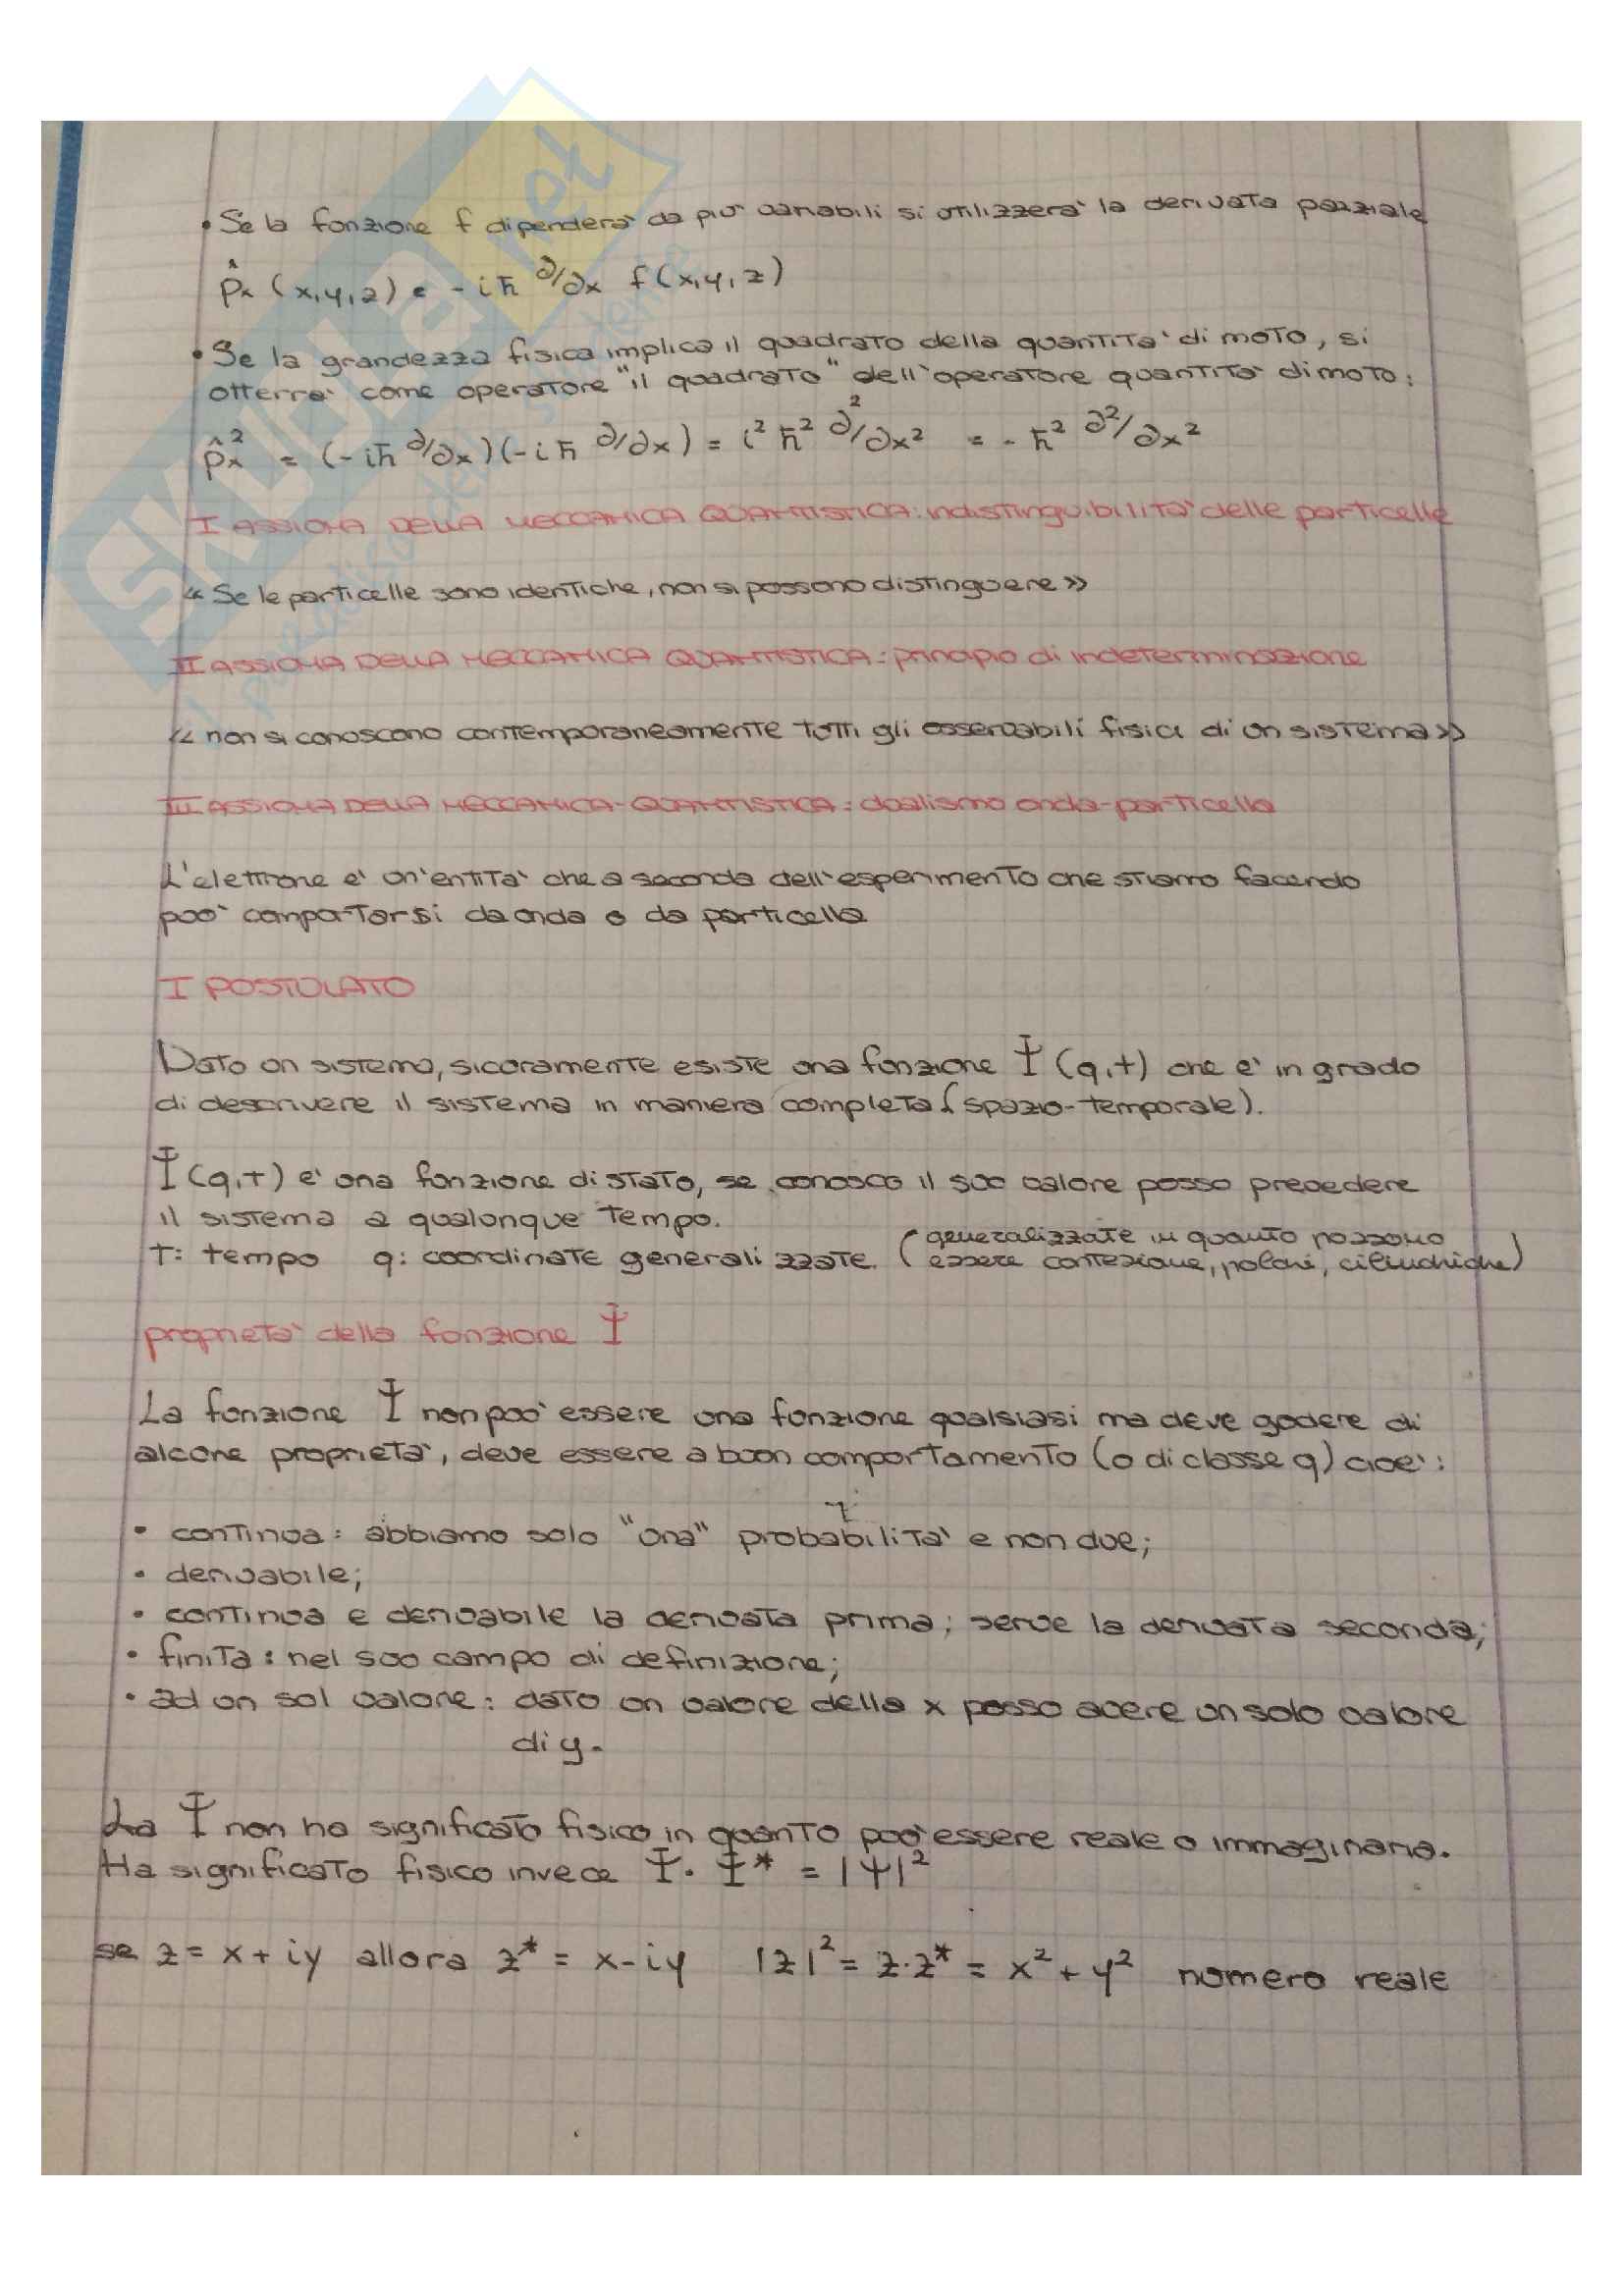 • Se la funzione f dipenderà da più variabili si utilizzerà la derivata parziale
p̂x (x,y,z) = -iħ ∂/∂x f(x,y,z)
• Se la grandezza fisica implica il quadrato della quantità di moto, si
otterrà come operatore "il quadrato" dell'operatore quantità di moto:
p̂x² = (-iħ ∂/∂x)(-iħ ∂/∂x) = i²ħ² ∂²/∂x² = -ħ² ∂²/∂x²
I ASSIOMA DELLA MECCANICA QUANTISTICA: indistinguibilità delle particelle
« Se le particelle sono identiche, non si possono distinguere »
II ASSIOMA DELLA MECCANICA QUANTISTICA: principio di indeterminazione
« non si conoscono contemporaneamente tutti gli osservabili fisici di un sistema »
III ASSIOMA DELLA MECCANICA-QUANTISTICA: dualismo onda-particella
L'elettrone e' un'entità che a seconda dell'esperimento che stiamo facendo
può comportarsi da onda o da particella
I POSTULATO
Dato un sistema, sicuramente esiste una funzione Ψ (q,t) che e' in grado
di descrivere il sistema in maniera completa (spazio-temporale).
Ψ (q,t) e' una funzione di stato, se conosco il suo valore posso prevedere
il sistema a qualunque tempo.
t: tempo q: coordinate generalizzate. (generalizzate in quanto possono
essere cartesiane, polari, cilindriche)
proprietà della funzione Ψ
La funzione Ψ non può essere una funzione qualsiasi ma deve godere di
alcune proprietà, deve essere a buon comportamento (o di classe q) cioe':
• continua: abbiamo solo "una" probabilità e non due;
• derivabile;
• continua e derivabile la derivata prima; serve la derivata seconda;
• finita: nel suo campo di definizione;
• ad un sol valore: dato un valore della x posso avere un solo valore
di y.
La Ψ non ha significato fisico in quanto può essere reale o immaginaria.
Ha significato fisico invece Ψ · Ψ* = |Ψ|²
se z = x + iy allora z* = x - iy |z|² = z·z* = x² + y² numero reale